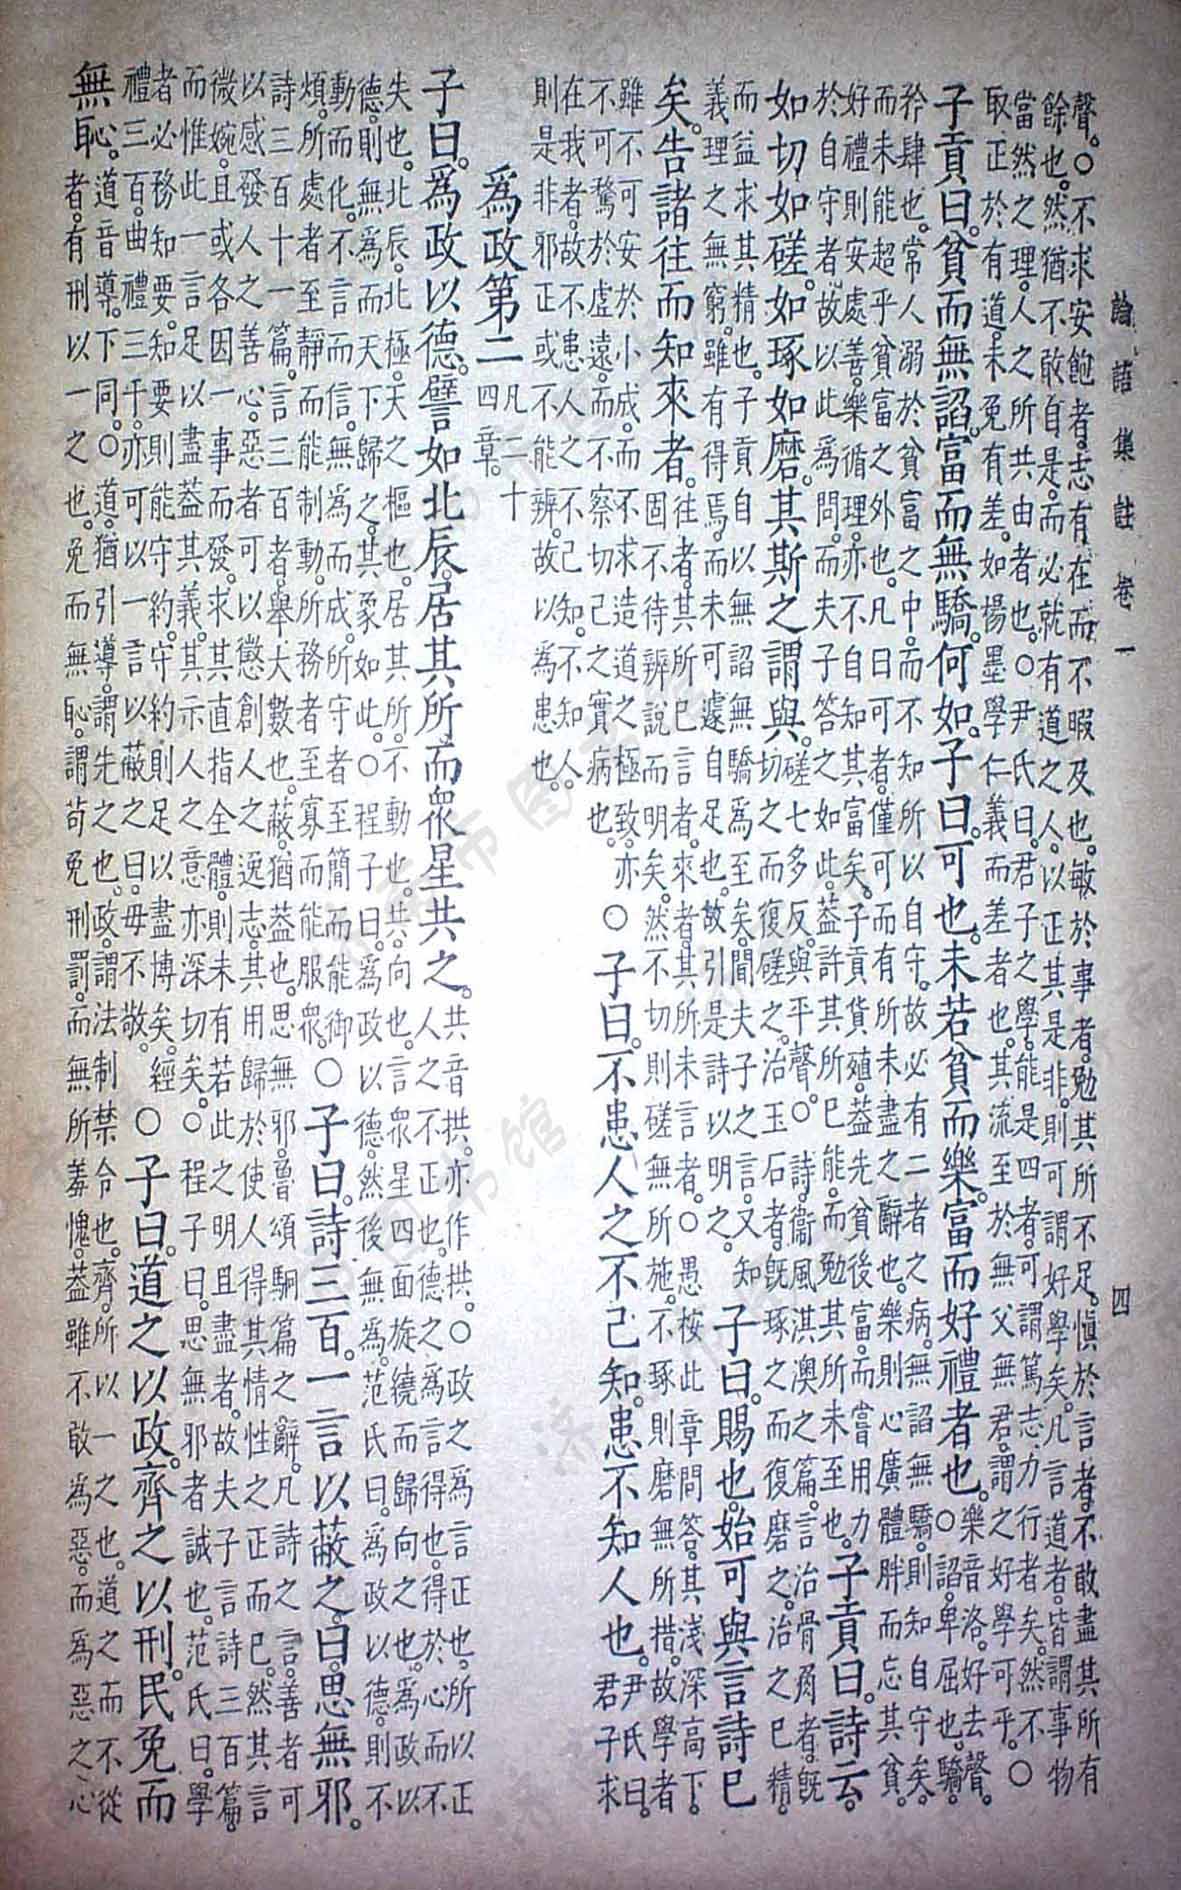 論語集註卷一
四
聲。○不求安飽者。志有在而不暇及也。敏於事者。勉其所不足。愼於言者。不敢盡其所有
餘也。然猶不敢自是。而必就有道之人。以正其是非。則可謂好學矣。凡言道者。皆謂事物
當然之理。人之所共由者也。○尹氏曰。君子之學。能是四者。可謂篤志力行者矣。然不
取正於有道。未免有差。如楊墨學仁義而差者也。其流至於無父無君。謂之好學可乎。○
子貢曰。貧而無諂。富而無驕。何如。子曰。可也。未若貧而樂。富而好禮者也。○樂音洛。好去聲。諂。卑屈也。驕。
矜肆也。常人溺於貧富之中。而不知所以自守。故必有二者之病。無諂無驕。則知自守矣。
而未能超乎貧富之外也。凡曰可者。僅可而有所未盡之辭也。樂則心廣體胖而忘其貧。
好禮則安處善。樂循理。亦不自知其富矣。子貢貨殖。蓋先貧後富。而嘗用力
於自守者。故以此爲問。而夫子答之如此。蓋許其所已能。而勉其所未至也。子貢曰。詩云。
如切如磋。如琢如磨。其斯之謂與。磋七多反。與平聲。○詩衛風淇澳之篇。言治骨角者。旣
切之而復磋之。治玉石者。旣琢之而復磨之。治之已精。
而益求其精也。子貢自以無諂無驕爲至矣。聞夫子之言。又知
義理之無窮。雖有得焉。而未可遽自足也。故引是詩以明之。子曰。賜也。始可與言詩已
矣。告諸往而知來者。往者。其所已言者。來者。其所未言者。○愚按此章問答。其淺深高下。
固不待辨說而明矣。然不切則磋無所施。不琢則磨無所措。故學者
雖不可安於小成。而不求造道之極致。亦
不可騖於虛遠。而不察切己之實病也。○子曰。不患人之不己知。患不知人也。尹氏曰。君子求
在我者。故不患人之不己知。不知人。
則是非邪正或不能辨。故以爲患也。
爲政第二 凡二十四章。
子曰。爲政以德。譬如北辰。居其所。而眾星共之。共音拱。亦作拱。○政之爲言正也。所以正
人之不正也。德之爲言得也。得於心而不
失也。北辰。北極。天之樞也。居其所。不動也。共。向也。言眾星四面旋繞而歸向之也。爲政以
德。則無爲而天下歸之。其象如此。○程子曰。爲政以德。然後無爲。范氏曰。爲政以德。則不
動而化。不言而信。無爲而成。所守者至簡而能御
煩。所處者至靜而能制動。所務者至寡而能服眾。○子曰。詩三百。一言以蔽之。曰思無邪。
詩三百十一篇。言三百者。舉大數也。蔽。猶蓋也。思無邪。魯頌駉篇之辭。凡詩之言。善者可
以感發人之善心。惡者可以懲創人之逸志。其用歸於使人得其情性之正而已。然其言
微婉。且或各因一事而發。求其直指全體。則未有若此之明且盡者。故夫子言詩三百篇。
而惟此一言足以盡蓋其義。其示人之意亦深切矣。○程子曰。思無邪者誠也。范氏曰。學
者必務知要。知要則能守約。守約則足以盡博矣。經
禮三百。曲禮三千。亦可以一言以蔽之曰。毋不敬。○子曰。道之以政。齊之以刑。民免而
無恥。道音導。下同。○道。猶引導。謂先之也。政。謂法制禁令也。齊。所以一之也。道之而不從
者。有刑以一之也。免而無恥。謂苟免刑罰。而無所羞愧。蓋雖不敢爲惡。而爲惡之心